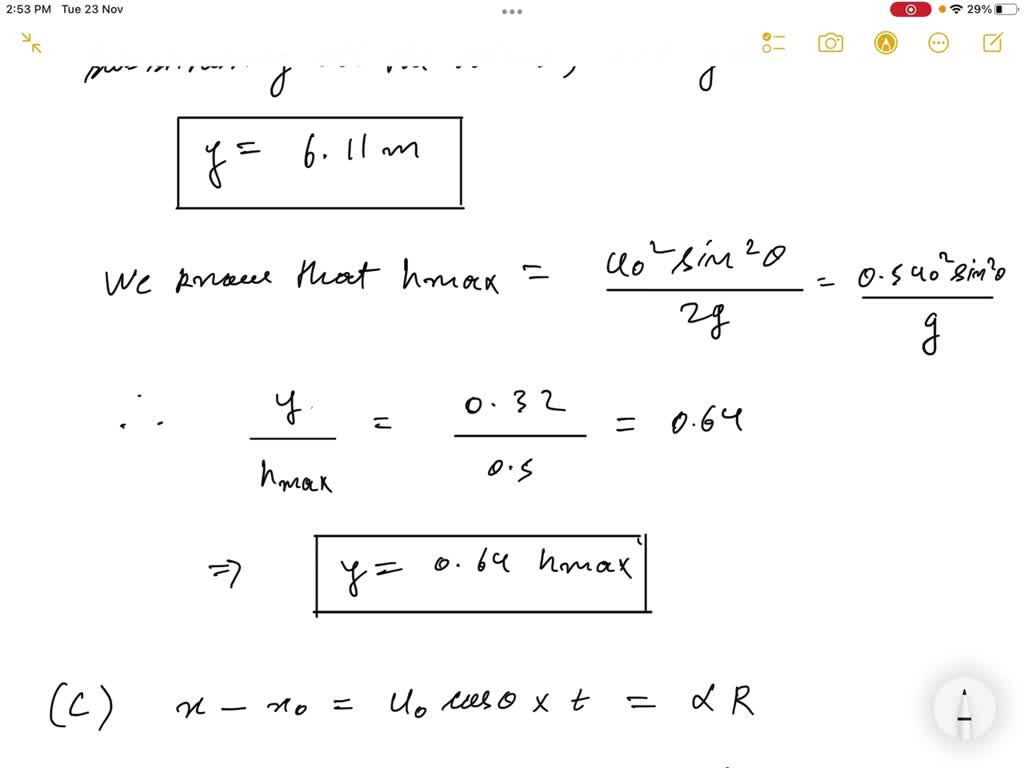 2:53 PM Tue 23 Nov
29%
y = 6.11 m
We know that hmax = u₀² sin²θ / 2g = 0.5 u₀² sin²θ / g
∴ y / hmax = 0.32 / 0.5 = 0.64
⇒ y = 0.64 hmax
(C) x - x₀ = u₀ cosθ × t = αR